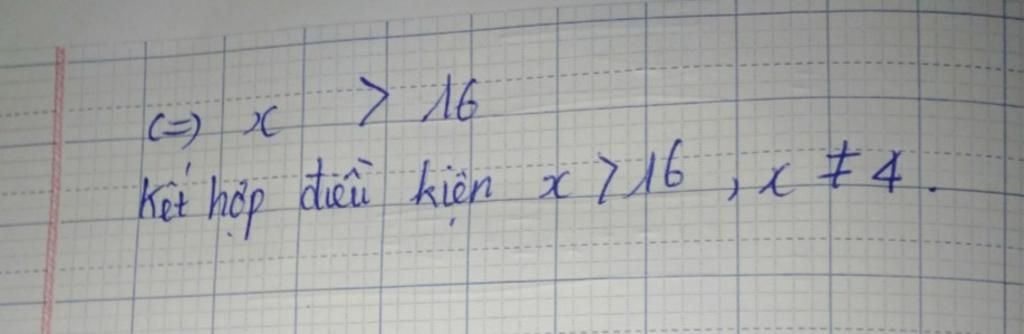 <=> x > 16
Kết hợp điều kiện x > 16 , x ≠ 4 .